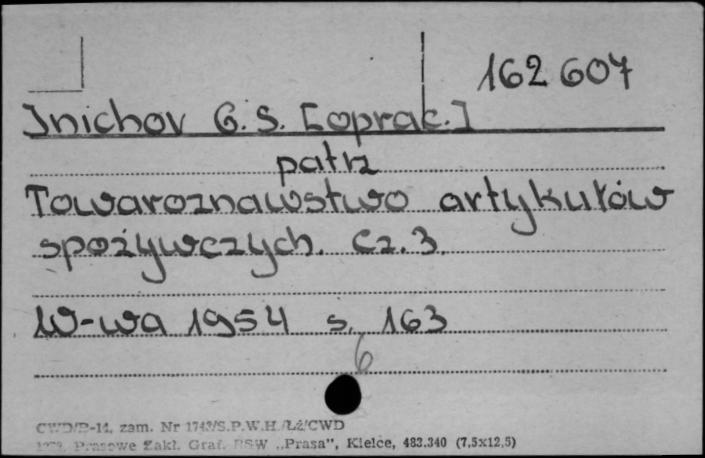 162 607
Inichov G. S. [oprac.]
patrz
Towaroznawstwo artykułów
spożywczych. Cz. 3.
W-wa 1954 s. 163
6
CWD/P-14, zam. Nr 1743/S.P.W.H./Łż/CWD
Prasowe Zakł. Graf. RSW „Prasa", Kielce, 483.340 (7,5x12,5)